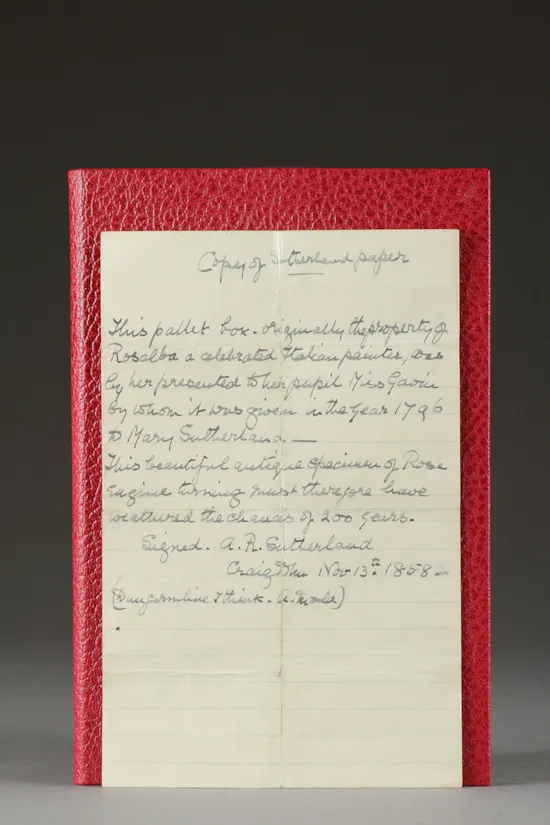 Copy of Sutherland paper
This pallet box - originally the property of
Rosalba a celebrated Italian painter, was
by her presented to her pupil Miss Gavin
by whom it was given in the Year 1796
to Mary Sutherland —
This beautiful antique specimen of Rose
Engine turning must therefore have
weathured the chances of 200 years.
Signed. A. R. Sutherland
Nov 13th 1858
I think -